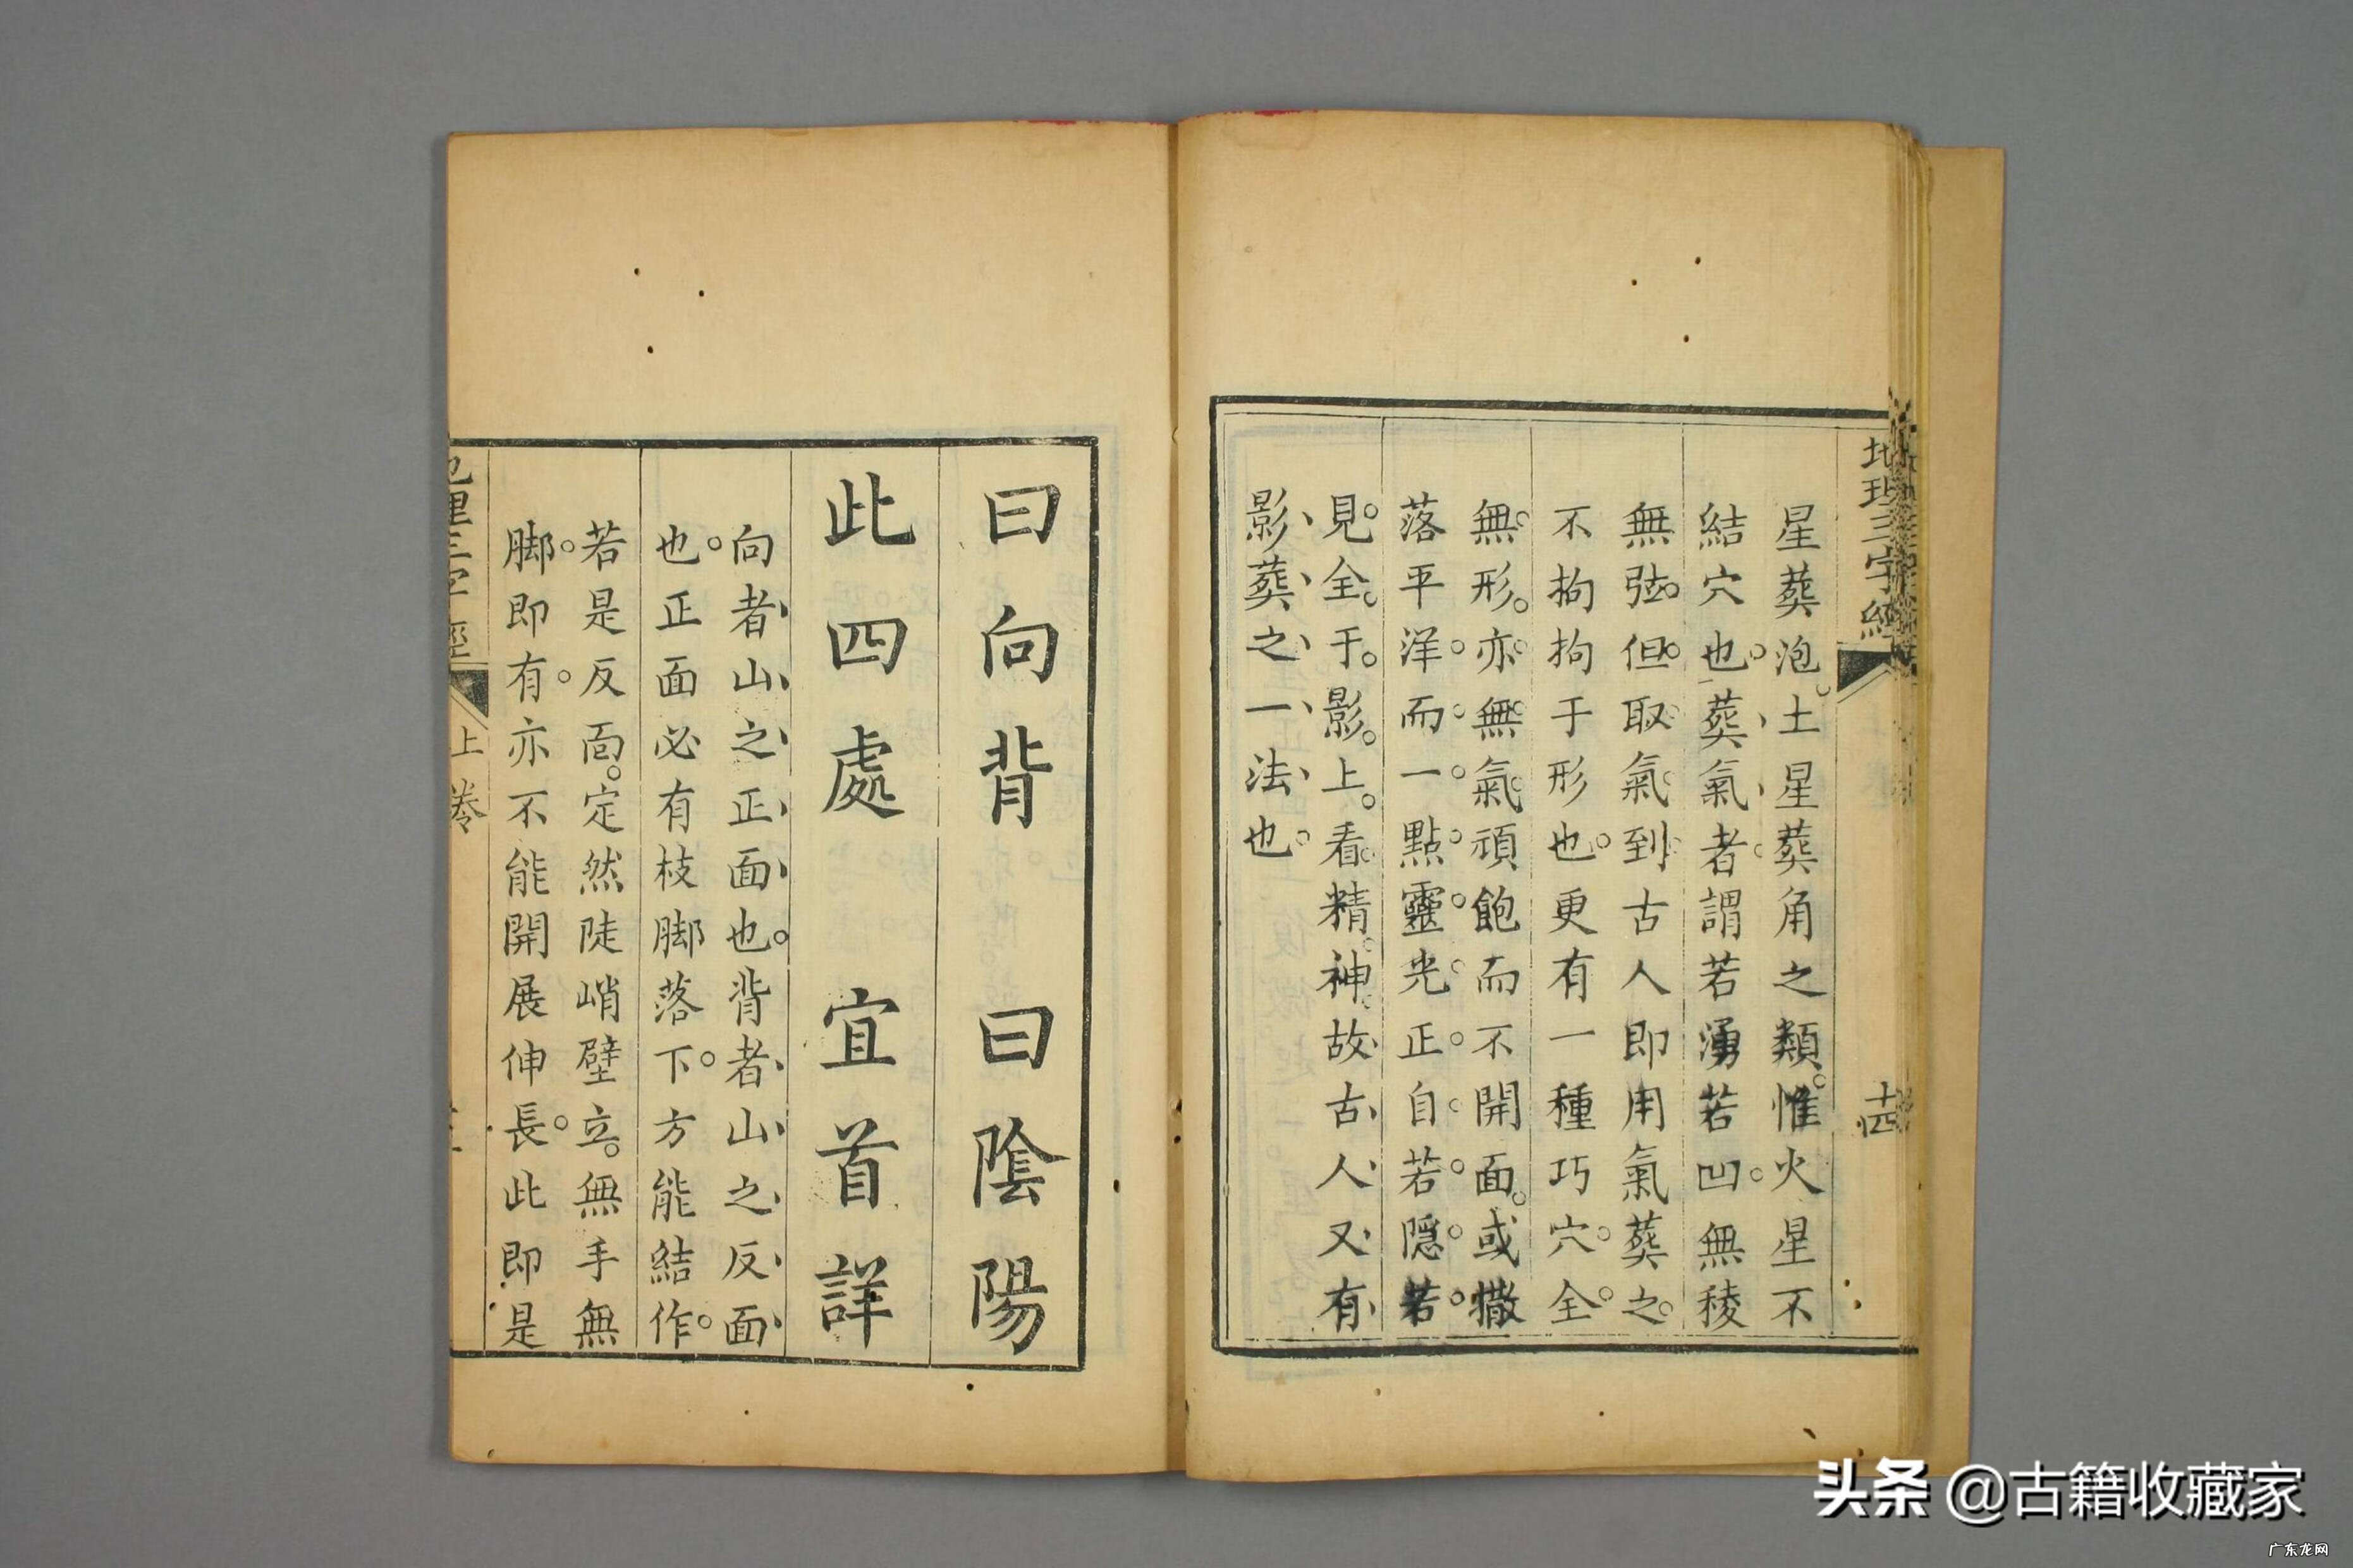 地理三字經
十四
星葬泡。土星葬角之類。惟火星不
結穴也。葬氣者。謂若湧若凹。無稜
無弦。但取氣到。古人即用氣葬之。
不拘拘于形也。更有一種巧穴。全
無形。亦無氣。頑飽而不開面。或撒
落平洋。而一點靈光。正自若隱若
見。全于影上看精神。故古人又有
影葬之一法也。
曰向背 曰陰陽
此四處 宜首詳
向者山之正面也。背者山之反面
也。正面必有枝脚落下。方能結作。
若是反面。定然陡峭壁立。無手無
脚。即有。亦不能開展伸長。此即是
地理三字經
上卷
头条 @古籍收藏家
广东龙网